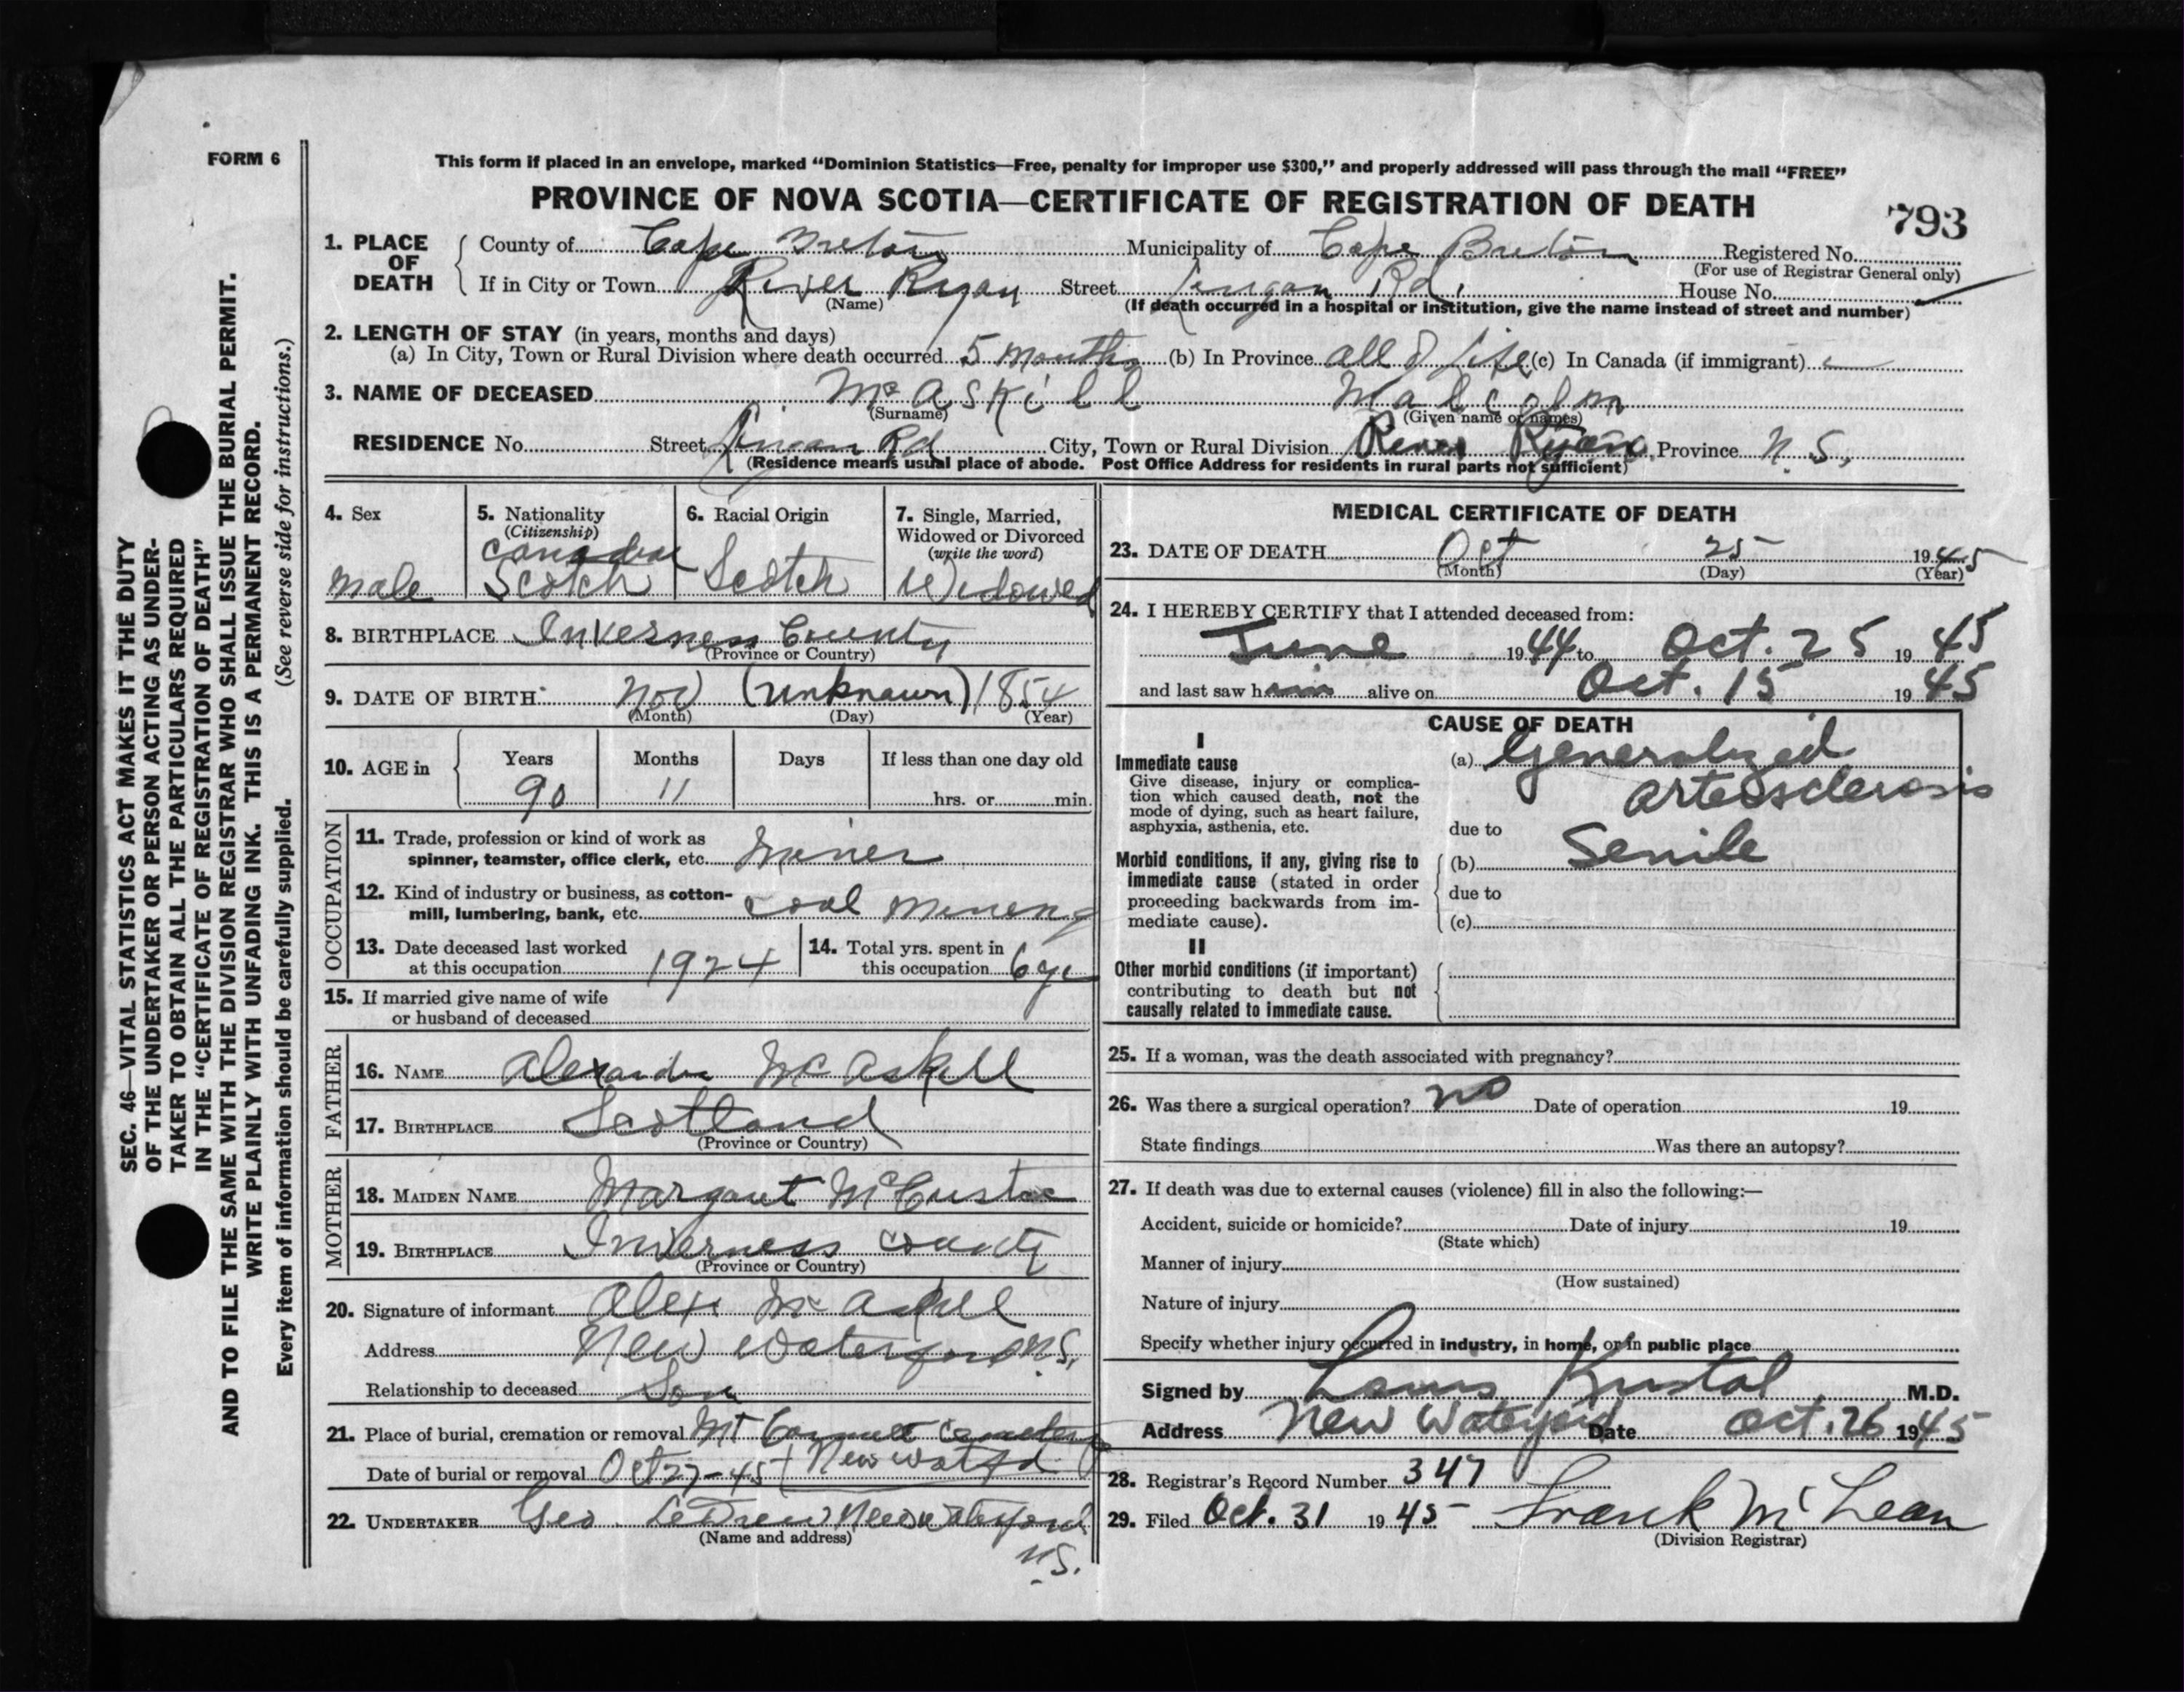 FORM 6
This form if placed in an envelope, marked “Dominion Statistics—Free, penalty for improper use $300,” and properly addressed will pass through the mail “FREE”
PROVINCE OF NOVA SCOTIA—CERTIFICATE OF REGISTRATION OF DEATH
793
1. PLACE OF DEATH
County of Cape Breton Municipality of Cape Breton Registered No.
(For use of Registrar General only)
If in City or Town River Ryan Street Lingan Rd. House No.
(Name) (If death occurred in a hospital or institution, give the name instead of street and number)
2. LENGTH OF STAY (in years, months and days)
(a) In City, Town or Rural Division where death occurred 5 months (b) In Province all of life (c) In Canada (if immigrant)
3. NAME OF DECEASED McAskill Malcolm
(Surname) (Given name or names)
RESIDENCE No. Street Lingan Rd City, Town or Rural Division River Ryan Province N.S.
(Residence means usual place of abode. Post Office Address for residents in rural parts not sufficient)
4. Sex
male
5. Nationality
(Citizenship)
Canadian
Scotch
6. Racial Origin
Scotch
7. Single, Married,
Widowed or Divorced
(write the word)
Widowed
8. BIRTHPLACE Inverness County
(Province or Country)
9. DATE OF BIRTH Nov (unknown) 1854
(Month) (Day) (Year)
10. AGE in Years Months Days If less than one day old
90 11 hrs. or min.
OCCUPATION
11. Trade, profession or kind of work as
spinner, teamster, office clerk, etc. miner
12. Kind of industry or business, as cotton-
mill, lumbering, bank, etc. coal mining
13. Date deceased last worked
at this occupation 1924
14. Total yrs. spent in
this occupation
15. If married give name of wife
or husband of deceased
FATHER
16. NAME Alexander McAskill
17. BIRTHPLACE Scotland
(Province or Country)
MOTHER
18. MAIDEN NAME Margaret
19. BIRTHPLACE Inverness county
(Province or Country)
20. Signature of informant Alex McAskill
Address New Waterford N.S.
Relationship to deceased Son
21. Place of burial, cremation or removal Mt Carmel Cemetery
Date of burial or removal Oct 27-45 New Watfd
22. UNDERTAKER Geo. LeDrew New Waterford
(Name and address)
N.S.
MEDICAL CERTIFICATE OF DEATH
23. DATE OF DEATH Oct 25 1945
(Month) (Day) (Year)
24. I HEREBY CERTIFY that I attended deceased from:
June 1944 to Oct. 25 1945
and last saw him alive on Oct. 15 1945
CAUSE OF DEATH
I
Immediate cause
Give disease, injury or complica-
tion which caused death, not the
mode of dying, such as heart failure,
asphyxia, asthenia, etc.
(a) Generalized
arteosclerosis
due to
Morbid conditions, if any, giving rise to
immediate cause (stated in order
proceeding backwards from im-
mediate cause).
(b) Senile
due to
(c)
II
Other morbid conditions (if important)
contributing to death but not
causally related to immediate cause.
25. If a woman, was the death associated with pregnancy?
26. Was there a surgical operation? no Date of operation 19
State findings Was there an autopsy?
27. If death was due to external causes (violence) fill in also the following:—
Accident, suicide or homicide? Date of injury 19
(State which)
Manner of injury
(How sustained)
Nature of injury
Specify whether injury occurred in industry, in home, or in public place
Signed by Louis M.D.
Address New Waterford Date Oct. 26 1945
28. Registrar’s Record Number 347
29. Filed Oct. 31 1945 Frank McLean
(Division Registrar)
SEC. 46—VITAL STATISTICS ACT MAKES IT THE DUTY
OF THE UNDERTAKER OR PERSON ACTING AS UNDER-
TAKER TO OBTAIN ALL THE PARTICULARS REQUIRED
IN THE “CERTIFICATE OF REGISTRATION OF DEATH”
AND TO FILE THE SAME WITH THE DIVISION REGISTRAR WHO SHALL ISSUE THE BURIAL PERMIT.
WRITE PLAINLY WITH UNFADING INK. THIS IS A PERMANENT RECORD.
Every item of information should be carefully supplied. (See reverse side for instructions.)